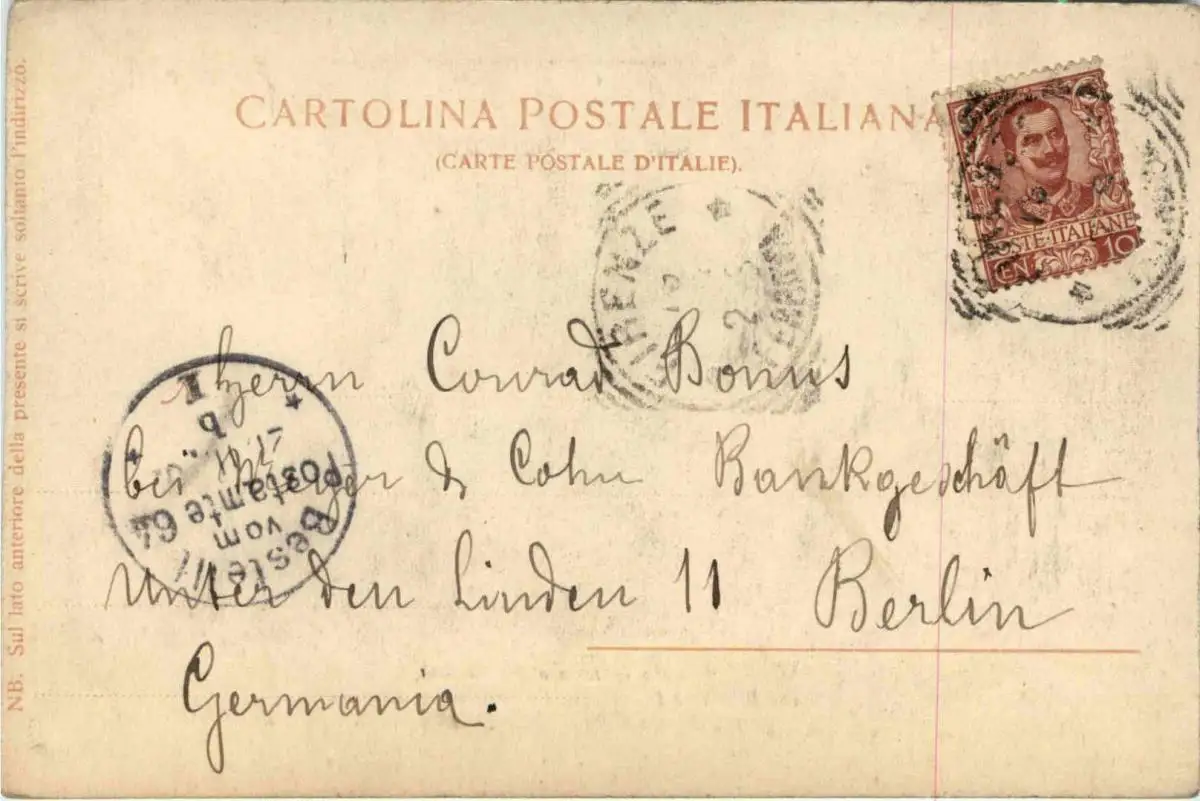 CARTOLINA POSTALE ITALIANA
(CARTE POSTALE D'ITALIE).
POSTE·ITALIANE
CEN 10
FIRENZE
Herrn Conrad Bonus
bei Meyer & Cohn Bankgeschäft
Unter den Linden 11 Berlin
Germania.
Bestellt
vom
Postamte 64
NB. Sul lato anteriore della presente si scrive soltanto l'indirizzo.